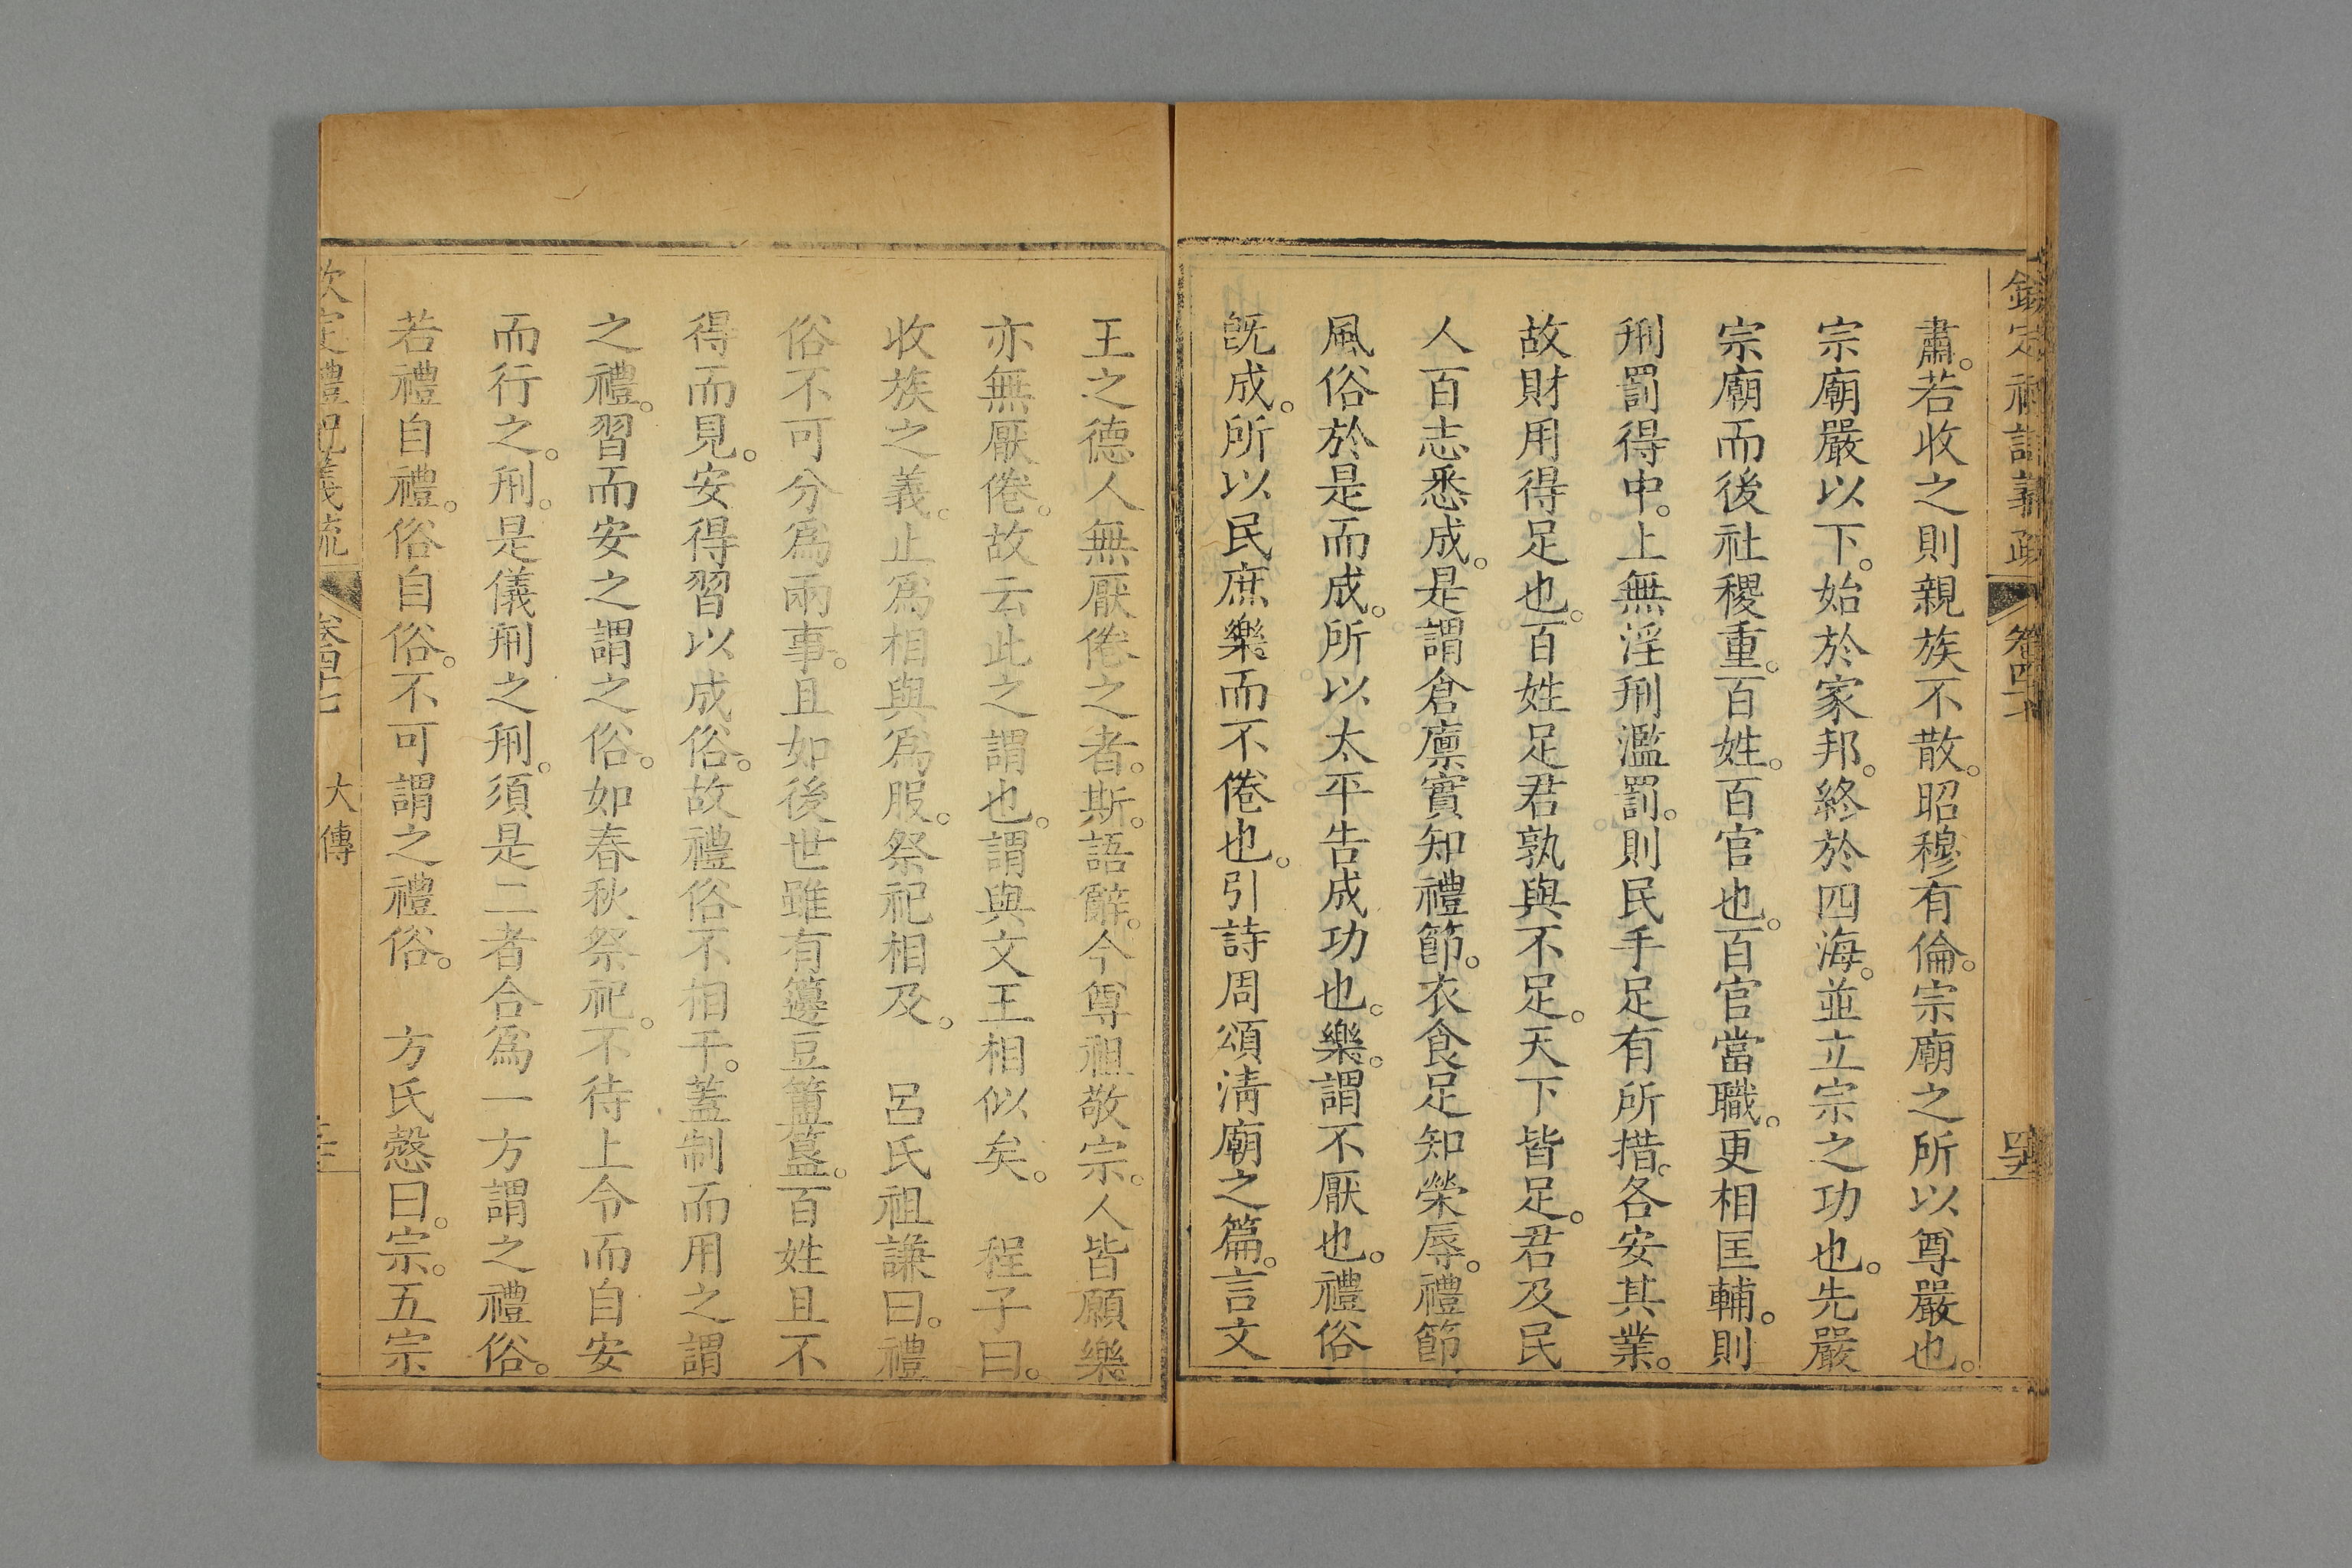 肅。若收之則親族不散。昭穆有倫。宗廟之所以尊嚴也。
宗廟嚴以下。始於家邦。終於四海。並立宗之功也。先嚴
宗廟而後社稷重。百姓。百官也。百官當職。更相匡輔。則
刑罰得中。上無淫刑濫罰。則民手足有所措。各安其業。
故財用得足也。百姓足君孰與不足。天下皆足。君及民
人百志悉成。是謂倉廩實知禮節。衣食足知榮辱。禮節
風俗於是而成。所以太平告成功也。樂。謂不厭也。禮俗
既成。所以民庶樂而不倦也。引詩周頌淸廟之篇。言文
王之德人無厭倦之者。斯。語辭。今尊祖敬宗。人皆願樂
亦無厭倦。故云此之謂也。謂與文王相似矣。 程子曰。
收族之義。止爲相與爲服。祭祀相及。 呂氏祖謙曰。禮
俗不可分爲兩事。且如後世雖有籩豆簠簋。百姓且不
得而見。安得習以成俗。故禮俗不相干。蓋制而用之謂
之禮。習而安之謂之俗。如春秋祭祀。不待上令而自安
而行之。刑。是儀刑之刑。須是二者合爲一方謂之禮俗。
若禮自禮。俗自俗。不可謂之禮俗。 方氏慤曰。宗。五宗
欽定禮記義疏 卷四十七 大傳